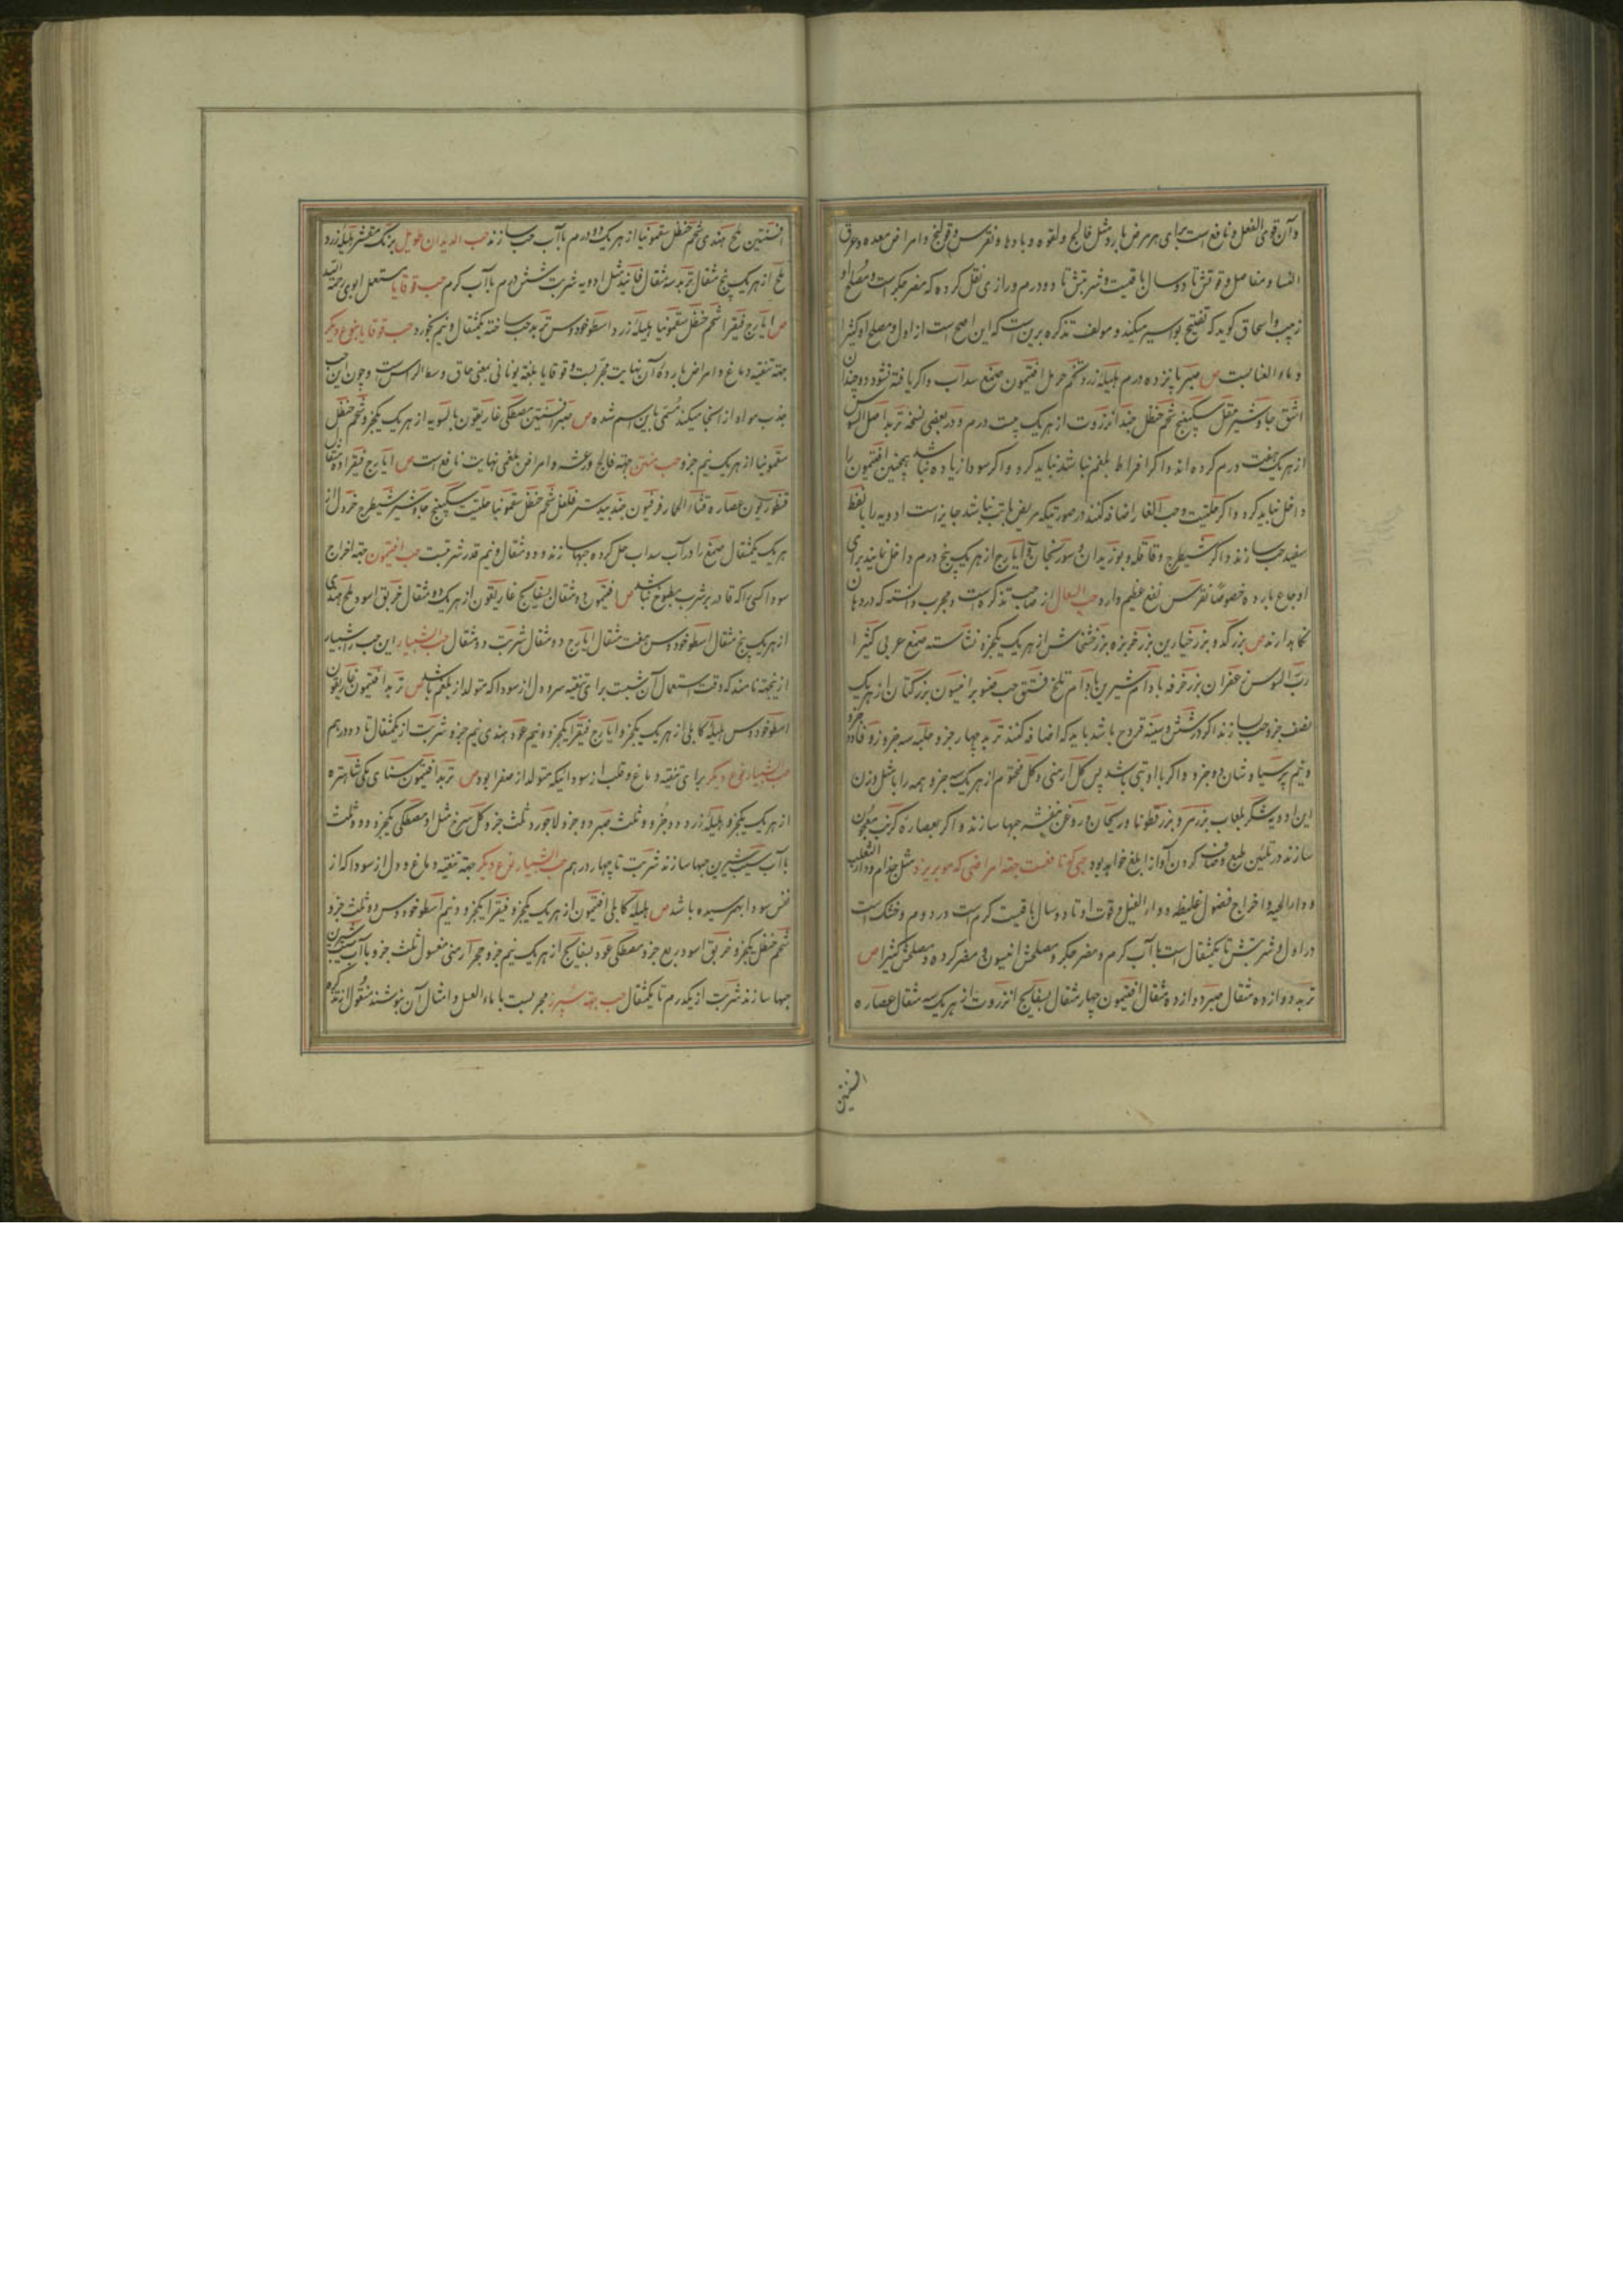 وآن قوی الفعل و نافع است برای هر مرض بارد مثل فالج و لقوه و بادها و نقرس و قولنج و امراض معده و عرق
النسا و مفاصل و قوتش تا دو سال باقیست و شربتش تا دو درم و رازی نقل کرده که مضر جگر است و مصلح او
زبیب و اسحاق کوید که تفتیح بواسیر میکند و مولف تذکره برین است که این اصح است از اول و مصلح او کثیرا
و ماء العنابست ص صبر پانزده درم هلیله زرد تخم حرمل افتیمون صمغ سداب و اکر یافته نشود دو چندان
اشق جاوشیر مقل سکبینج شحم حنظل جند انزروت از هر یک بیست درم و در بعضی نسخه تربد اصل السوس
از هر یک هفت درم کرده اند و اکر افراط بلغم نباشد نباید کرد و اکر سودا زیاده نباشد همچنین افتیمون را
داخل نباید کرد و اکر حلتیت و حب الغار اضافه کنند در صورتیکه مریض با تب نباشد جایز است ادویه را با نفط
سفید حب سازند و اکر شیطرج و قاقله و بوزیدان و سورنجان و ایارج از هر یک پنج درم داخل نمایند برای
اوجاع بارده خصوصًا نقرس نفع عظیم دارد حب السعال از صاحب تذکره است و مجرب دانسته که در دهان
نکاهدارند ص بزر کدو بزر خیارین بزر خربزه بزر خشخاش از هر یک یکجزو نشاسته صمغ عربی کثیرا
رب السوس زعفران بزر خرفه بادام شیرین بادام تلخ فستق حب صنوبر انیسون بزر کتان از هر یک
نصف جزو حب سازند اکر در شش و سینه قروح باشد باید که اضافه کنند تربد چهار جزو حلبه سه جزو زوفا دو جزو
و نیم پرسیاوشان دو جزو و اکر با او تبی باشد پس کل ارمنی و کل مختوم از هر یک سه جزو و همه را با مثل وزن
این ادویه شکر بلعاب بزر مرو بزر قطونا و ریحان و روغن بنفشه حبها سازند و اکر بعصاره کرنب معجون
سازند در تلیین طبع و صاف کردن آواز ابلغ خواهد بود حبی که نافعست جهة امراضی که مو بریزد مثل جذام و داء الثعلب
و داء الحیه و اخراج فضول غلیظه و داء الفیل و قوت او تا دو سال باقیست کرم است در دوم و خشک است
در اول و شربتش تا یکمثقال است با آب کرم و مضر جگر و مصلحش انیسون و مضر کرده و مصلحش کثیرا ص
تربد دوازده مثقال صبر دوازده مثقال افتیمون چهار مثقال بسفایج انزروت از هر یک سه مثقال عصاره
افسنتین
افسنتین ملح هندی شحم حنظل سقمونیا از هر یک دو درم با آب حب سازند حب الدیدان طویل برنک مقشر هلیله زرد
ملح از هر یک پنج مثقال تربد سه مثقال فانید مثل ادویه شربت شش درم با آب کرم حب قوقایا مستعمل ابوی رحمة الله
ص ایارج فیقرا شحم حنظل سقمونیا هلیله زرد اسطوخودوس تربد حب ساخته یکمثقال و نیم بخورد حب قوقایا بنوع دیکر
جهة تنقیه دماغ و امراض بارده آن نهایت مجربست و قوقایا بلغة یونانی بمعنی حاق وسط الراس است و چون این حب
جذب مواد از آنجا میکند مسمی باین اسم شده ص صبر افسنتین مصطکی غاریقون بالسویه از هر یک یکجزو شحم حنظل
سقمونیا از هر یک نیم جزو حب منتن جهة فالج و رعشه و امراض بلغمی نهایت نافع است ص ایارج فیقرا ده مثقال
قنطوریون عصاره قثاء الحمار فرفیون جندبیدستر فلفل شحم حنظل سقمونیا حلتیت سکبینج جاوشیر شیطرج خردل از
هر یک یکمثقال صمغ را در آب سداب حل کرده حبها سازند و دو مثقال و نیم قدر شربتست حب افتیمون جهة اخراج
سودا کسی را که قادر بر شرب مطبوخ نباشد ص افتیمون ده مثقال بسفایج غاریقون از هر یک ده مثقال خربق اسود ملح هندی
از هر یک پنج مثقال اسطوخودوس هفت مثقال ایارج دو مثقال شربت دو مثقال حب الشبیار این حب را شبیار
از ینجهة نامند که وقت استعمال آن شبست برای تنقیه سر و دل از سودا که متولد از بلغم باشد ص تربد افتیمون غاریقون
اسطوخودوس هلیله کابلی از هر یک یکجزو ایارج فیقرا یکجزو و نیم عود هندی نیم جزو شربت از یکمثقال تا دو درهم
حب الشبیار نوع دیکر برای تنقیه دماغ و قلب از سودائیکه متولد از صفرا بود ص تربد افتیمون سنای مکی شاهتره
از هر یک یکجزو هلیله زرد دو جزو و ثلث صبر دو جزو لاجورد ثلث جزو کل سرخ مثل او مصطکی یکجزو و دو ثلث
با آب سیب شیرین حبها سازند شربت تا چهار درهم حب الشبیار نوع دیکر جهة تنقیه دماغ و دل از سودا که از
نفس سودا بهم رسیده باشد ص هلیله کابلی افتیمون از هر یک یکجزو فیقرا یکجزو و نیم اسطوخودوس دو ثلث جزو
شحم حنظل یکجزو خربق اسود ربع جزو مصطکی عود بسفایج از هر یک نیم جزو حجر ارمنی مغسول ثلث جزو با آب سیب شیرین
حبها سازند شربت از یکدرم تا یکمثقال حب جهة سپرز مجربست با ماء العسل و امثال آن بنوشند منقول از تذکره